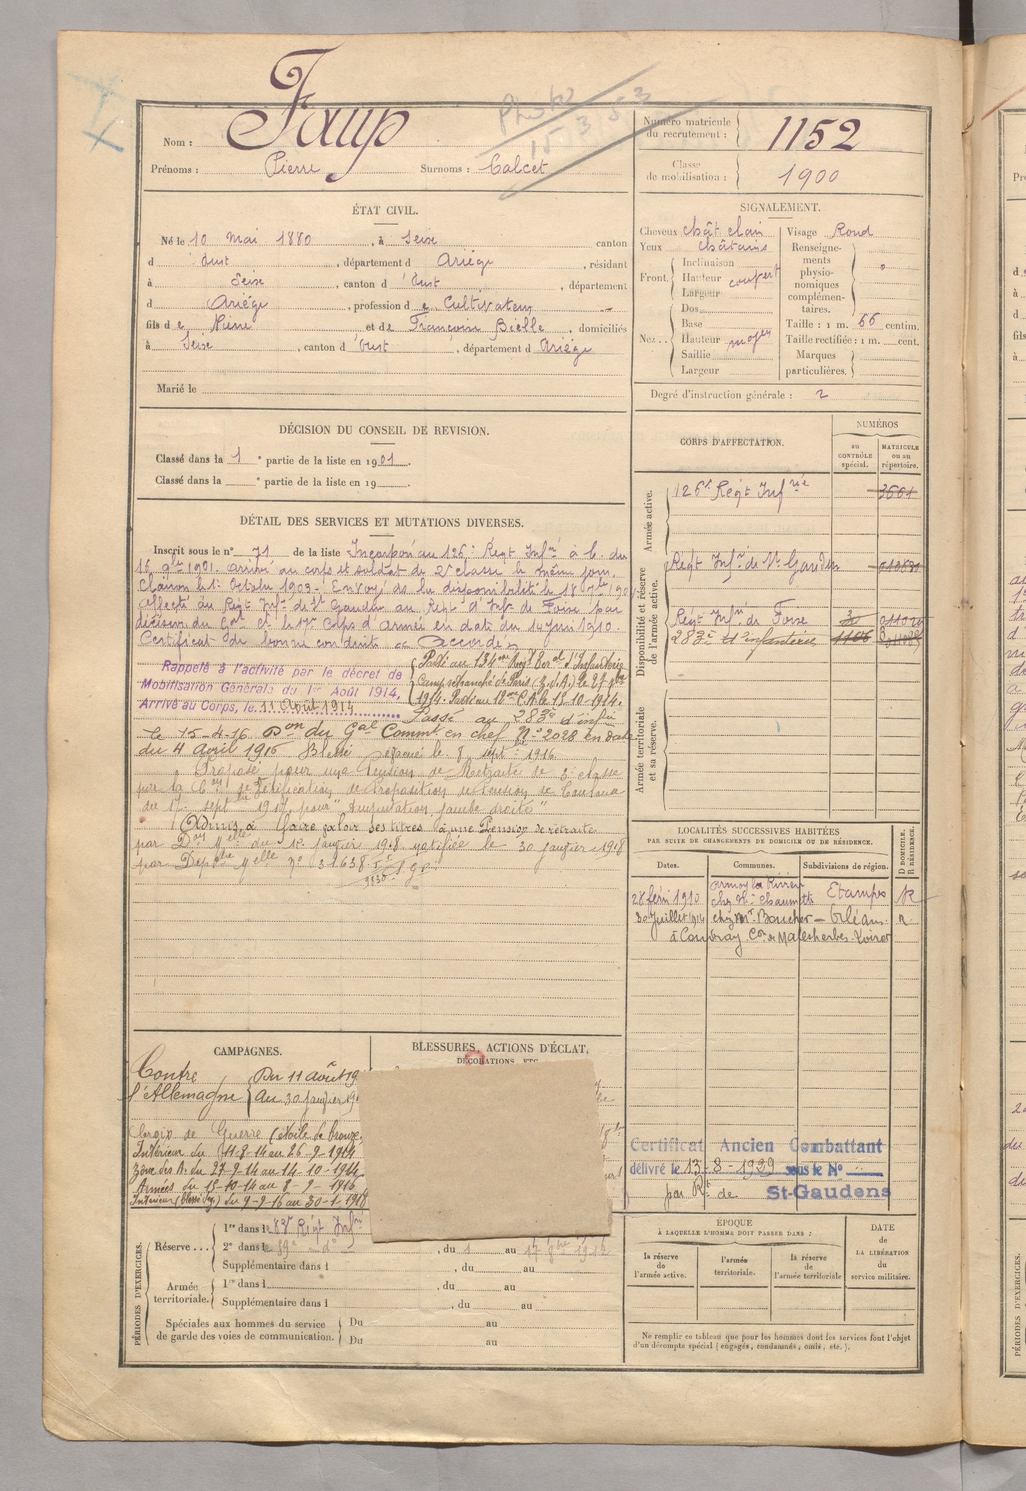 Nom : Faup
Prénoms : Pierre Surnoms : Calcet
Photo
15 3 53
Numéro matricule du recrutement : 1152
Classe de mobilisation : 1900
ÉTAT CIVIL.
Né le 10 Mai 1880, à Seix canton
d'Oust, département d Ariège, résidant
à Seix, canton d'Oust, département
d Ariège, profession de Cultivateur
fils de Pierre et de Françoise Bielle, domiciliés
à Seix, canton d'Oust, département d Ariège
Marié le
SIGNALEMENT.
Cheveux chât clair
Yeux châtains
Front. Inclinaison
Hauteur couvert
Largeur
Nez. Dos
Base
Hauteur moyen
Saillie
Largeur
Visage Rond
Renseignements physionomiques complémentaires.
Taille : 1 m. 66 centim.
Taille rectifiée : 1 m. cent.
Marques particulières.
Degré d'instruction générale : 2
DÉCISION DU CONSEIL DE REVISION.
Classé dans la 1e partie de la liste en 1901.
Classé dans la e partie de la liste en 19
DÉTAIL DES SERVICES ET MUTATIONS DIVERSES.
Inscrit sous le n° 71 de la liste Incorporé au 126e Regt Infrie à c. du
16 9bre 1901. arrivé au corps et soldat de 2e classe le même jour.
Clairon le 1er Octobre 1903. Envoyé dans la disponibilité le 18 7bre 1904
Affecté au Régt Infie de St Gaudens au Régt d'Infie de Foix par
décision du Gal Ct le 17e Corps d'Armée en date du 14 Juin 1910.
Certificat de bonne conduite " Accordé "
Rappelé à l'activité par le décret de
Mobilisation Générale du 1er Août 1914,
Arrivé au Corps, le 11 Août 1914
Passé au 134me Regt Ter al d'Infanterie
Camp retranché de Paris (Z.d.A) le 27 7bre
1914. Passé au 12me C.A. le 15-10-1914.
Passé au 283e d'infie
le 15-4-16 Don du Gal Commt en chef No 2028 en date
du 4 Avril 1916 Blessé évacué le 8 sept 1916
Proposé pour une Pension de Retraite de 5e classe
du 17 septbre 1917 pour " Amputation jambe droite "
Admis à faire valoir ses titres à une Pension de retraite
par Don Melle du 1er janvier 1918 notifiée le 30 janvier 1918
CORPS D'AFFECTATION.
NUMÉROS
au CONTRÔLE spécial.
MATRICULE ou au répertoire.
Armée active.
126e Régt Infrie 3661
Disponibilité et réserve de l'armée active.
Régt Infie de St Gaudens
Régt Infie de Foix
283e d'infanterie
Armée territoriale et sa réserve.
LOCALITÉS SUCCESSIVES HABITÉES
PAR SUITE DE CHANGEMENTS DE DOMICILE OU DE RÉSIDENCE.
Dates. Communes. Subdivisions de région. D DOMICILE. R RÉSIDENCE.
28 févr 1910 chez Mr Chaumette Etampes R
30 Juillet 1914 chez Mr Boucher — Orléans. R.
à Coudray Con de Malesherbes. Loiret
CAMPAGNES.
Contre l'Allemagne
Du 11 Août 19
Au 30 janvier 19
Croix de Guerre (étoile de bronze
Intérieur du 11-8-14 au 26-9-1914
Zône des A. du 27-9-14 au 14-10-1914
Armées du 15-10-14 au 8-9-1916
Intérieur (blessé ) du 9-9-16 au 30-1-1918
BLESSURES, ACTIONS D'ÉCLAT,
DÉCORATIONS, ETC.
Certificat Ancien Combattant
délivré le 13-8-1929 sous le No
par Rt de St-Gaudens
PÉRIODES D'EXERCICES.
Réserve... 1re dans le 83e Régt Infie
2e dans le 59e — do —, du 1 au 17 9bre 1912
Supplémentaire dans l , du au
Armée territoriale. 1re dans l
Supplémentaire dans l , du au
Spéciales aux hommes du service de garde des voies de communication. Du au
Du au
ÉPOQUE
À LAQUELLE L'HOMME DOIT PASSER DANS :
la réserve de l'armée active.
l'armée territoriale.
la réserve de l'armée territoriale
DATE de LA LIBÉRATION du service militaire.
Ne remplir ce tableau que pour les hommes dont les services font l'objet
d'un décompte spécial (engagés, condamnés, omis, etc.).